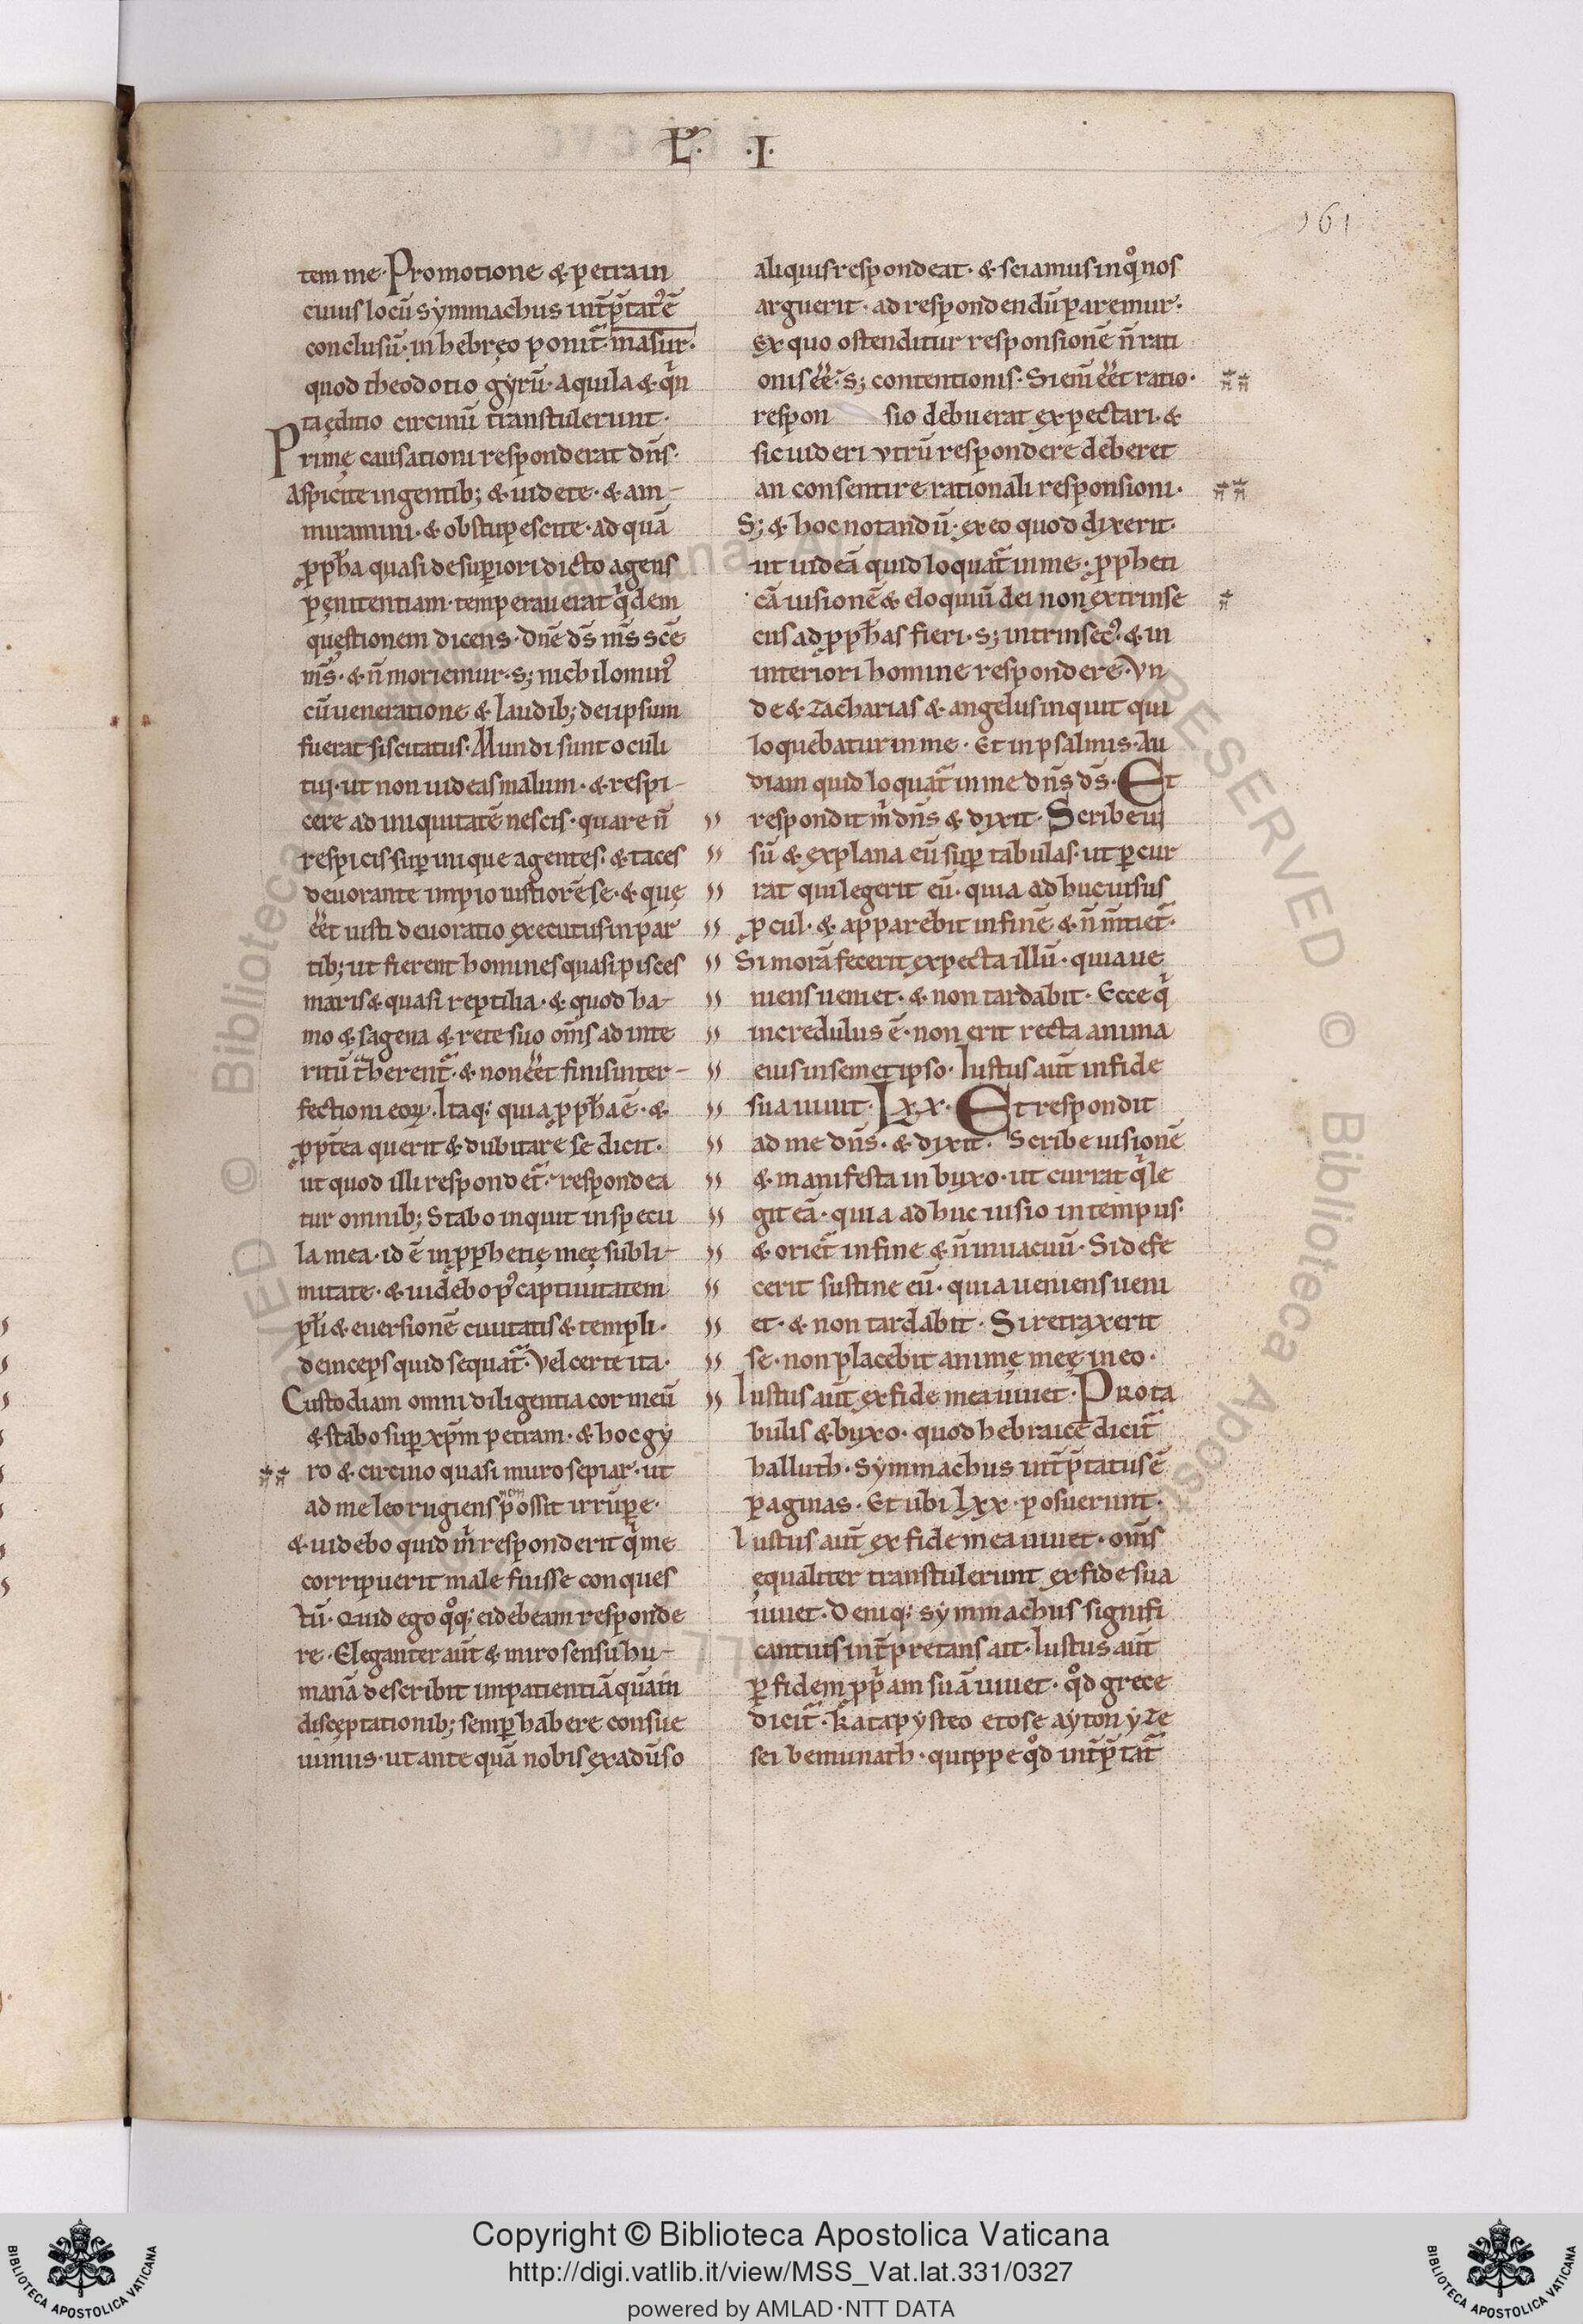 L. .I.
161
tem me. Promotione & petra in
cuius locū symmachus int̄p̄tat᾽ ē
conclusū. in hebręo ponit̄ masur.
quod theodotio gyrū. Aquila & q̇n
ta ęditio circinū transtulerunt.
Primę causationi responderat dn̄s.
Aspicite in gentib; & uidete. & am-
miramini. & obstupescite. ad quā
ꝓph̄a quasi de suꝑiori dicto agens
pęnitentiam. temperauerat q̇dem
questionem dicens. dn̄e ds̄ ms̄ sc̄e
ms̄. & n̄ moriemur. s; nichilomin᾽
cū ueneratione & laudib; dei ipsum
fuerat siscitatus. Mundi sunt oculi
tui. ut non uideas malum. & respi-
cere ad iniquitatē nescis. quare n̄
respicis suꝑ inique agentes. & taces
deuorante impio iustiorē se. & quę
eēt iusti deuoratio executus in par
tib; ut fierent homines quasi pisces
maris & quasi reptilia. & quod ha-
mo & sagena & rete suo om̄s ad inte
ritū t̄herent̄. & non eēt finis inter-
fectioni eoꝝ. Itaq; quia ꝓph̄a ē. &
ꝓpt̄ea querit & dubitare se dicit.
ut quod illi respondet̄. respondea
tur omnib; Stabo inquit in specu
la mea. id ē in ꝓphetię meę subli-
mitate. & uidebo p᾽ captiuitatem
pl̄i & euersionē ciuitatis & templi.
deinceps quid sequat̄. Vel certe ita.
Custodiam omni diligentia cor meū
& stabo suꝑ xp̄m petram. & hoc gy
ro & circino quasi muro sepiar. ut
ad me leo rugiens possit irrūpe.
& uidebo quid m̊ responderit q̇ me
corripuerit male fuisse conques
tū. Quid ego q̊q; ei debeam responde
re. Eleganter aūt & miro sensu hu-
manā describit impatientiā quā in
disceptationib; semꝑ habere consue
uimus. ut ante quā nobis ex adūso
aliquis respondeat. & sciamus in q̊ nos
arguerit. ad respondendū paremur.
Ex quo ostenditur responsionē n̄ rati
onis eē. s; contentionis. Si eni᷑ eēt ratio.
respon sio debuerat expectari. &
sic uideri vtrū respondere deberet
an consentire rationali responsioni.
S; & hoc notandū. ex eo quod dixerit.
ut uideā quid loquat̄ in me. ꝓpheti
cā uisionē & eloquiū dei non extrinse
cus ad ꝓph̄as fieri. s; intrinsec᾽. & in
interiori homine respondere. Vn
de & zacharias & angelus inquit qui
loquebatur in me. Et in psalmis. Au
diam quid loquat̄ in me dn̄s ds̄. Et
respondit m̊ dn̄s & dixit. Scribe ui
sū & explana eū suꝑ tabulas. ut ꝑcur
rat qui legerit eū. quia adhuc uisus
ꝓcul. & apparebit in finē & n̄ m̄tiet̄.
Si morā fecerit expecta illū. quia ue
niens ueniet. & non tardabit. Ecce q̇
incredulus ē. non erit recta anima
eius in semetipso. Iustus aūt in fide
sua uiuit. Lxx. Et respondit
ad me dn̄s. & dixit. Scribe uisionē
& manifesta in buxo. ut currat q̇ le
git eā. quia adhuc uisio in tempus.
& oriet̄ in fine & n̄ in uacuū. Si defe
cerit sustine eū. quia ueniens ueni
et. & non tardabit. Si retraxerit
se. non placebit animę meę in eo.
Iustus aūt ex fide mea uiuet. Pro ta
bulis & buxo. quod hebraice dicit̄
halluth. Symmachus int̄p̄tatus ē
paginas. Et ubi Lxx posuerunt.
Iustus aūt ex fide mea uiuet. om̄s
equaliter transtulerunt ex fide sua
uiuet. Deniq; symmachus signifi
cantius int̄pretans ait. Iustus aūt
ꝑ fidem ꝓpriam suā uiuet. q̊d grece
dicit̄. Katapysteo etose ayton yze
sei bemunath. quippe q̊d int̄p̄tat̄
Copyright © Biblioteca Apostolica Vaticana
http://digi.vatlib.it/view/MSS_Vat.lat.331/0327
powered by AMLAD·NTT DATA
BIBLIOTECA APOSTOLICA VATICANA
BIBLIOTECA APOSTOLICA VATICANA